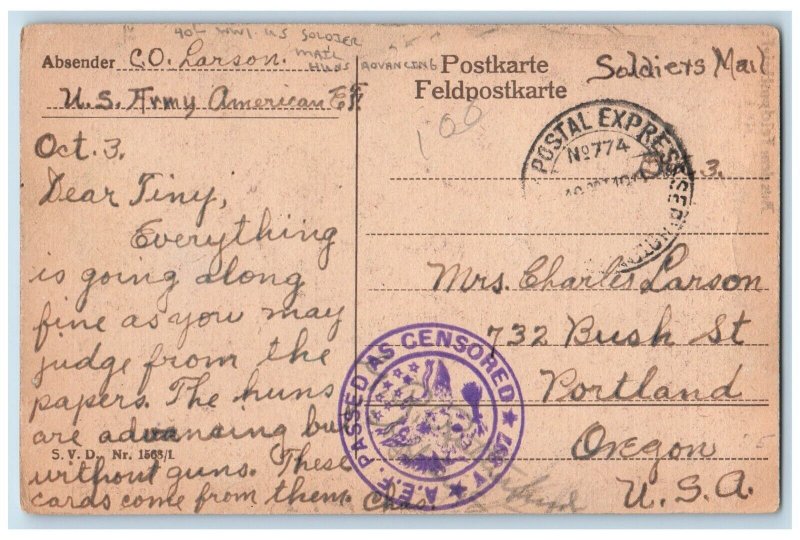 90¢ WWI US SOLDIER
MAIL
HUNS ADVANCING
Absender C.O. Larson.
U.S. Army American E.F.
Postkarte
Feldpostkarte
Soldiers Mail
100
POSTAL EXPRESS SERV
No 774
3.
Oct. 3.
Dear Tiny,
Everything
is going along
fine as you may
judge from the
papers. The huns
are advancing but
without guns. These
cards come from them. Chas.
S. V. D., Nr. 1568/1.
Mrs. Charles Larson
732 Bush St
Portland
Oregon
U.S.A.
A.E.F. PASSED AS CENSORED ARMY